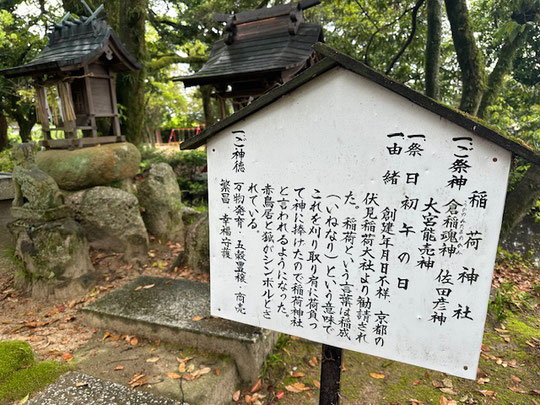 稲荷神社
一、ご祭神 倉稲魂神 佐田彦神
大宮能売神
一、祭日 初午の日
一、由緒 創建年月日不祥、京都の
伏見稲荷大社より勧請され
た。稲荷という言葉は稲成、
(いねなり)という意味で
これを刈り取り肩に荷負っ
て神に捧げたので稲荷神社
と言われるようになった。
赤鳥居と狐がシンボルとさ
れている。
一、ご神徳
万物発育・五穀豊穣・商売
繁昌 幸福守護